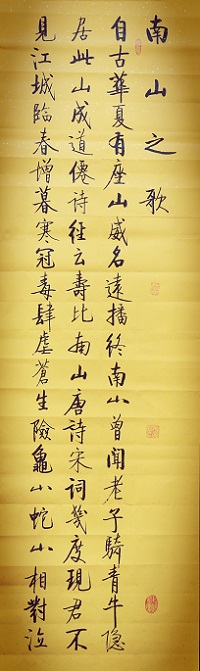 南山之歌
自古華夏有座山威名遠播終南山曾闻老子騎青牛隐
居此山成道僊诗往云壽比南山唐诗宋词幾度現君不
見江城臨春增暮寒冠毒肆虐蒼生險龜山蛇山相對泣